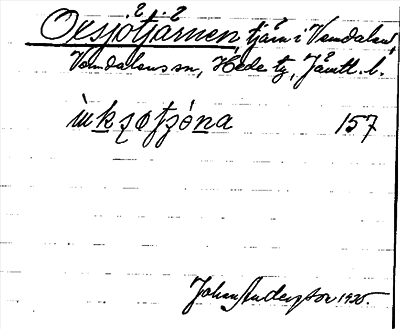 Oxsjötjärnen, tjärn i Vemdalen,
Vemdalens sn, Hede tg, Jämtl. l.
157
Johan Anderson 1925.